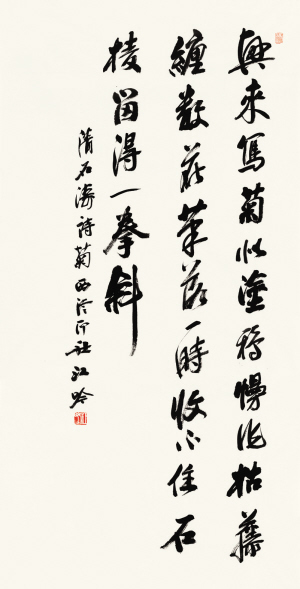 興來寫菊似塗鴉慢作枯藤
纏數花筆落一時收不住石
棱留得一拳斜
清石濤詩菊西泠印社江吟